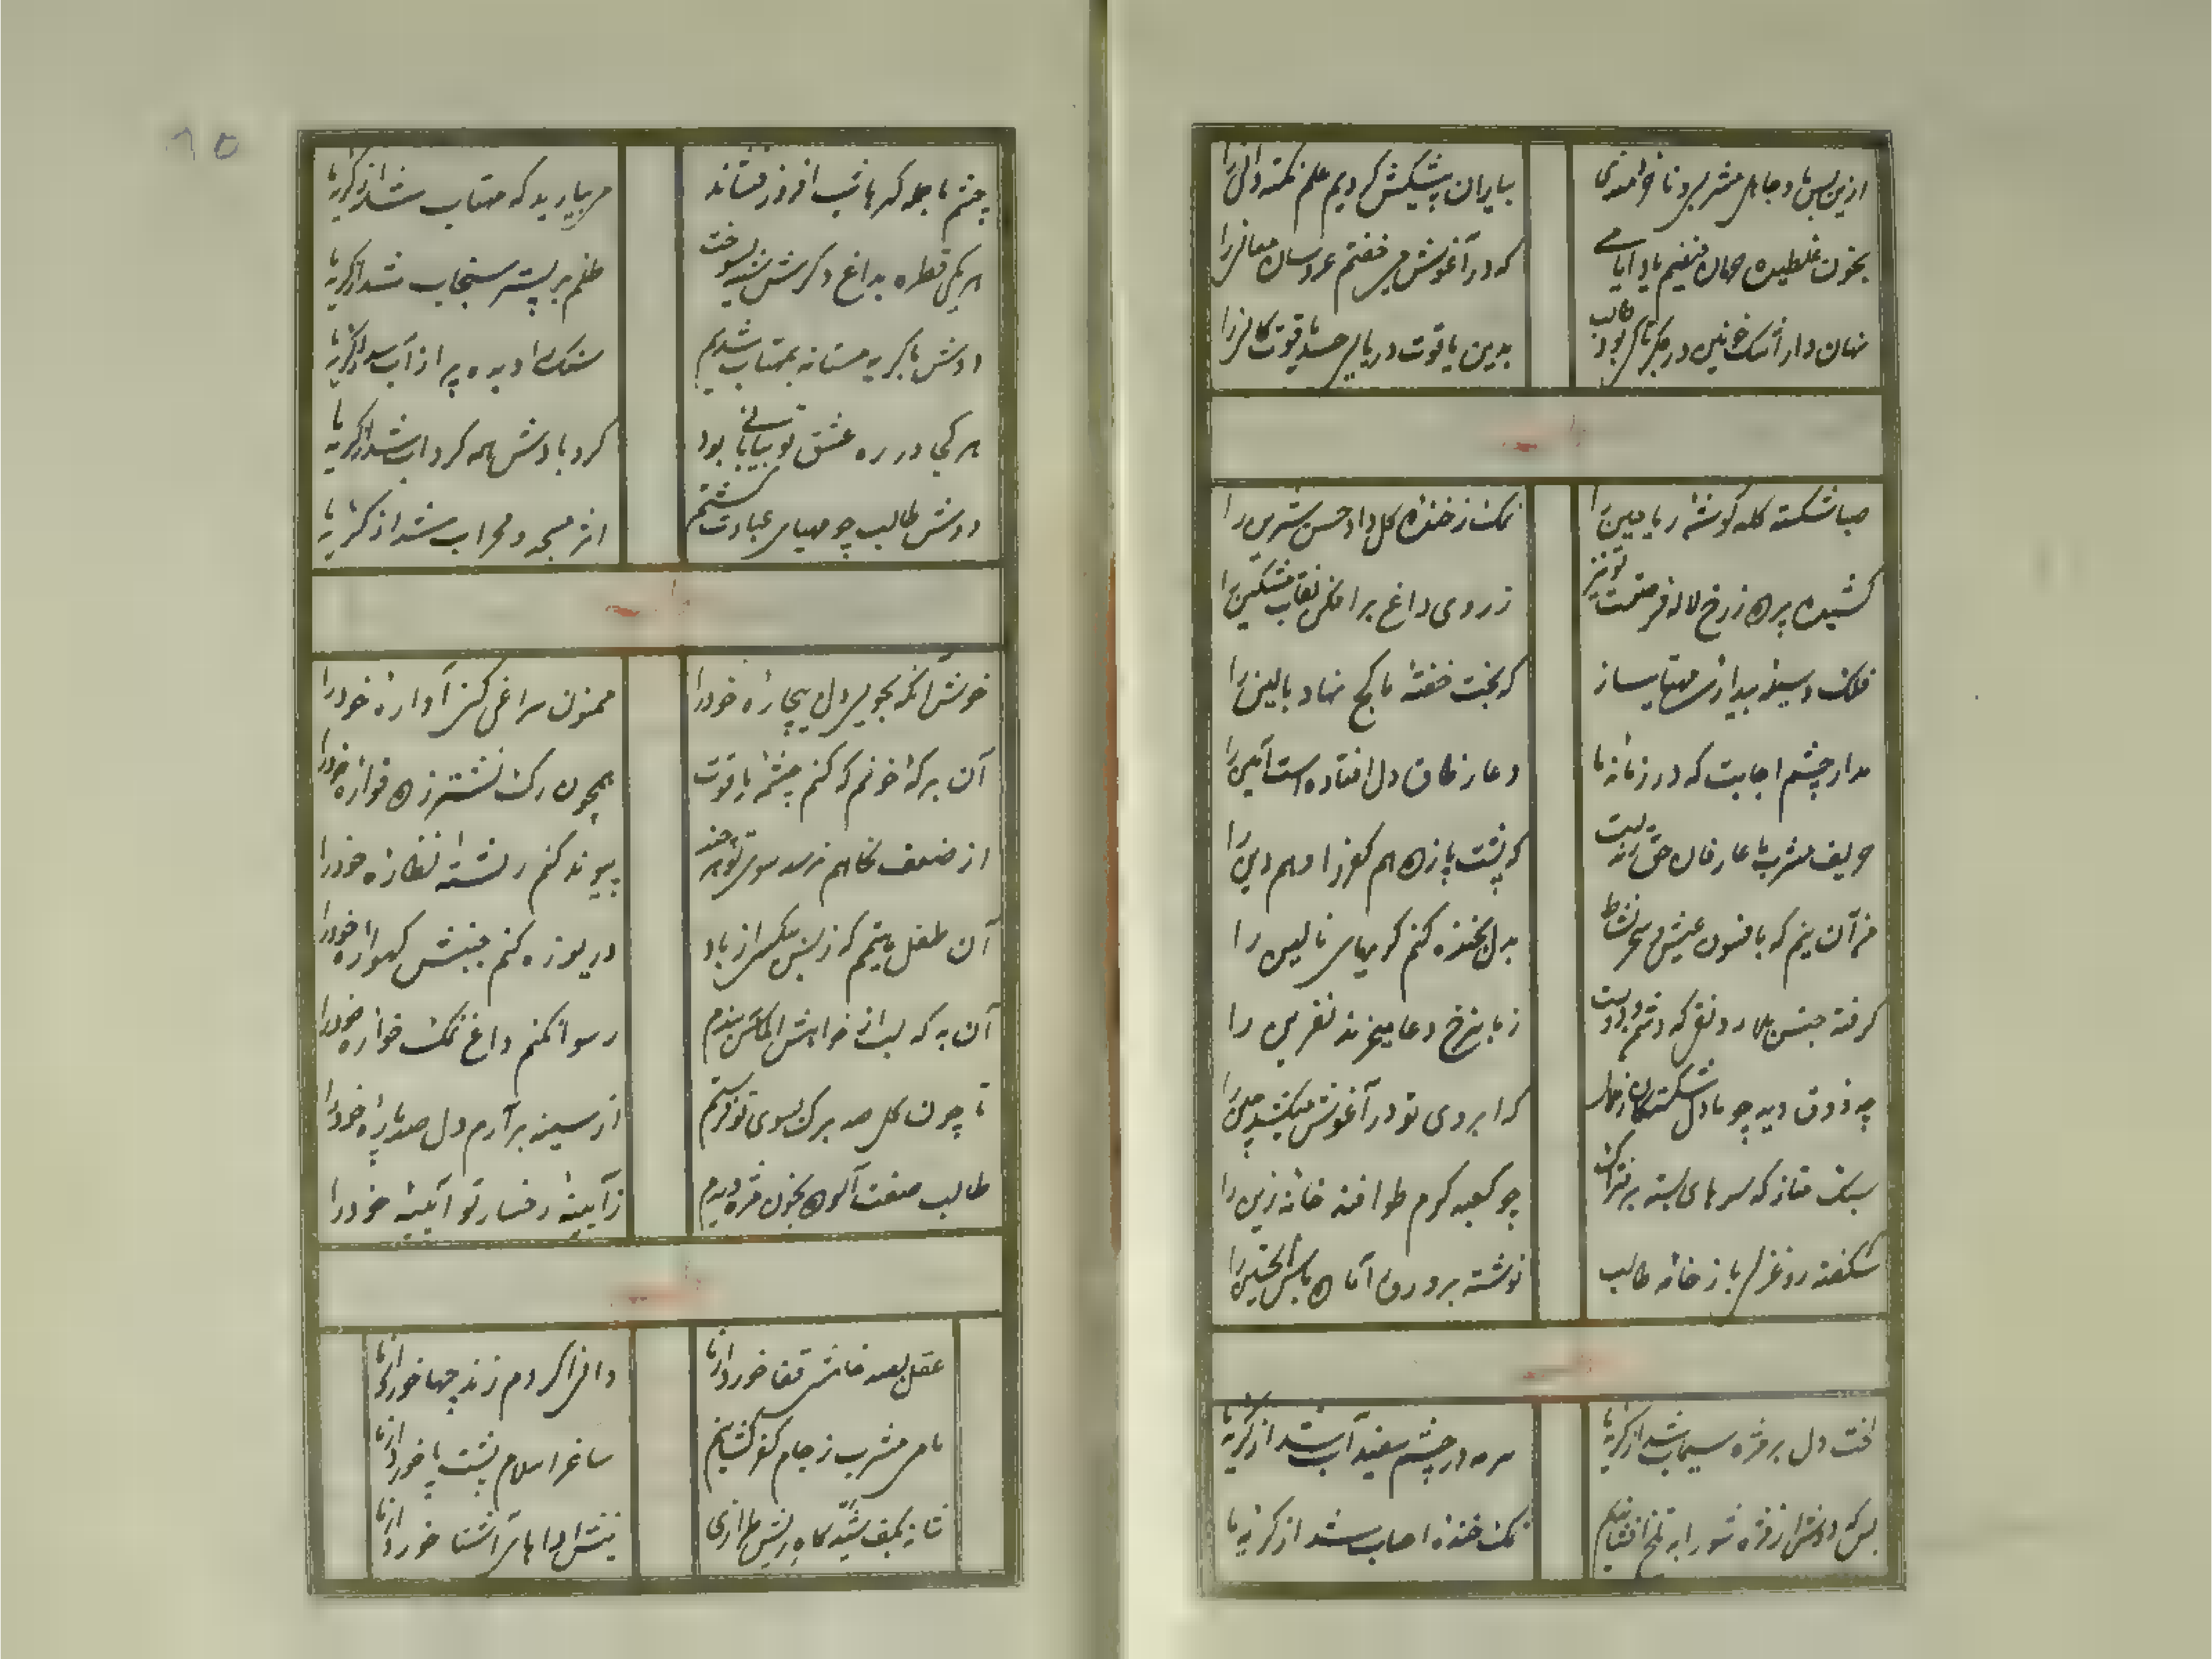 ازین پس ما و جاهل مشربی و ناخوانندی
بیاران پیشکش کردیم علم نکته دانی را
بخون غلطیده حرمان منم یاد ایامی
که در آغوش می خفتم عروسان معانی را
نهان دار اشک خونین در جگر طالب
بدین یاقوت دریایی قوت کانی را
صبا شکسته کله گوشه ریاحین را
نمک ز خنده گل داد حسن شیرین را
کشیده پرده ز رخ لاله فرصتت تو نیز
ز روی داغ برافکن نقاب مشکین را
فلک وسیله بیداری مهیا ساز
که بخت خفته ما کج نهاد بالین را
مدار چشم اجابت که در زمانه ما
دعا ز طاق دل افتاده است آمین را
حریف مشرب ما عارفان حق
که پشت پا زده هم کفر را و هم دین را
من آن نیم که بافسون عیش و سحر نشاط
بدل بخنده کنم گریهای نالین را
گرفته جنس بلا رونقی که دشمن و دوست
ز ما بنرخ دعا میخرند نفرین را
چه ذوق دید چو ما دل شکستگان ز نماز
که ابروی تو در آغوش میکشد چین را
سبک متاز که سرهای بسته بر فتراک
چو کعبه گرم طوافند خانه زین را
شکفته رو غزلی باز خامه طالب
نوشته بر ورق آماده باش تحسین را
لخت دل بر مژه سیماب شد از گریه ما
سرمه در چشم سفید آب شد از گریه ما
بسکه دوش از مژه شورابه تلخ افشاندیم
نمک خنده احباب شد از گریه ما
چشم ما جلو گهرهای شب افروز فشاند
مر بیارید که مهتاب شد از گریه ما
هر یکی قطره بداغ دگرش سینه بسوخت
ظلم بر بستر سنجاب شد از گریه ما
دوش با گریه مستانه بمهتاب شدیم
سنگ را دیده پر از آب شد از گریه ما
هر کجا در ره عشق تو بیابانی بود
گردبادش همه گرداب شد از گریه ما
دوش طالب چو مهیای عبادت گشتیم
اثر مسجد و محراب شد از گریه ما
خوش آنکه بجویی دل بیچاره خود را
ممنون سراغی کنی آواره خود را
آن برکه خونم که کنم چشمه یاقوت
همچون رگ نشتر زده فواره خود را
از ضعف نگاهم نرسد سوی تو هر چند
پیوند کنم رشته نظاره خود را
آن طفل یتیم که ز بس بیکسی از باد
دریوزه کنم جنبش گهواره خود را
آن به که لب از خواهش الماس ببندم
رسوا نکنم داغ نمک خواره خود را
تا چون گل صد برگ بسوی تو فرستم
از سینه برآرم دل صد پاره خود را
طالب صفت آلوده بخون مژه دیدم
ز آیینه رخسار تو آیینه خود را
عقل بصد خامشی قفا خورد از ما
وا فراگردم زند چها خورد از ما
ما می مشرب ز جام کفر کشانیم
ساغر اسلام پشت پا خورد از ما
نیش اداهای آشنا خورد از ما